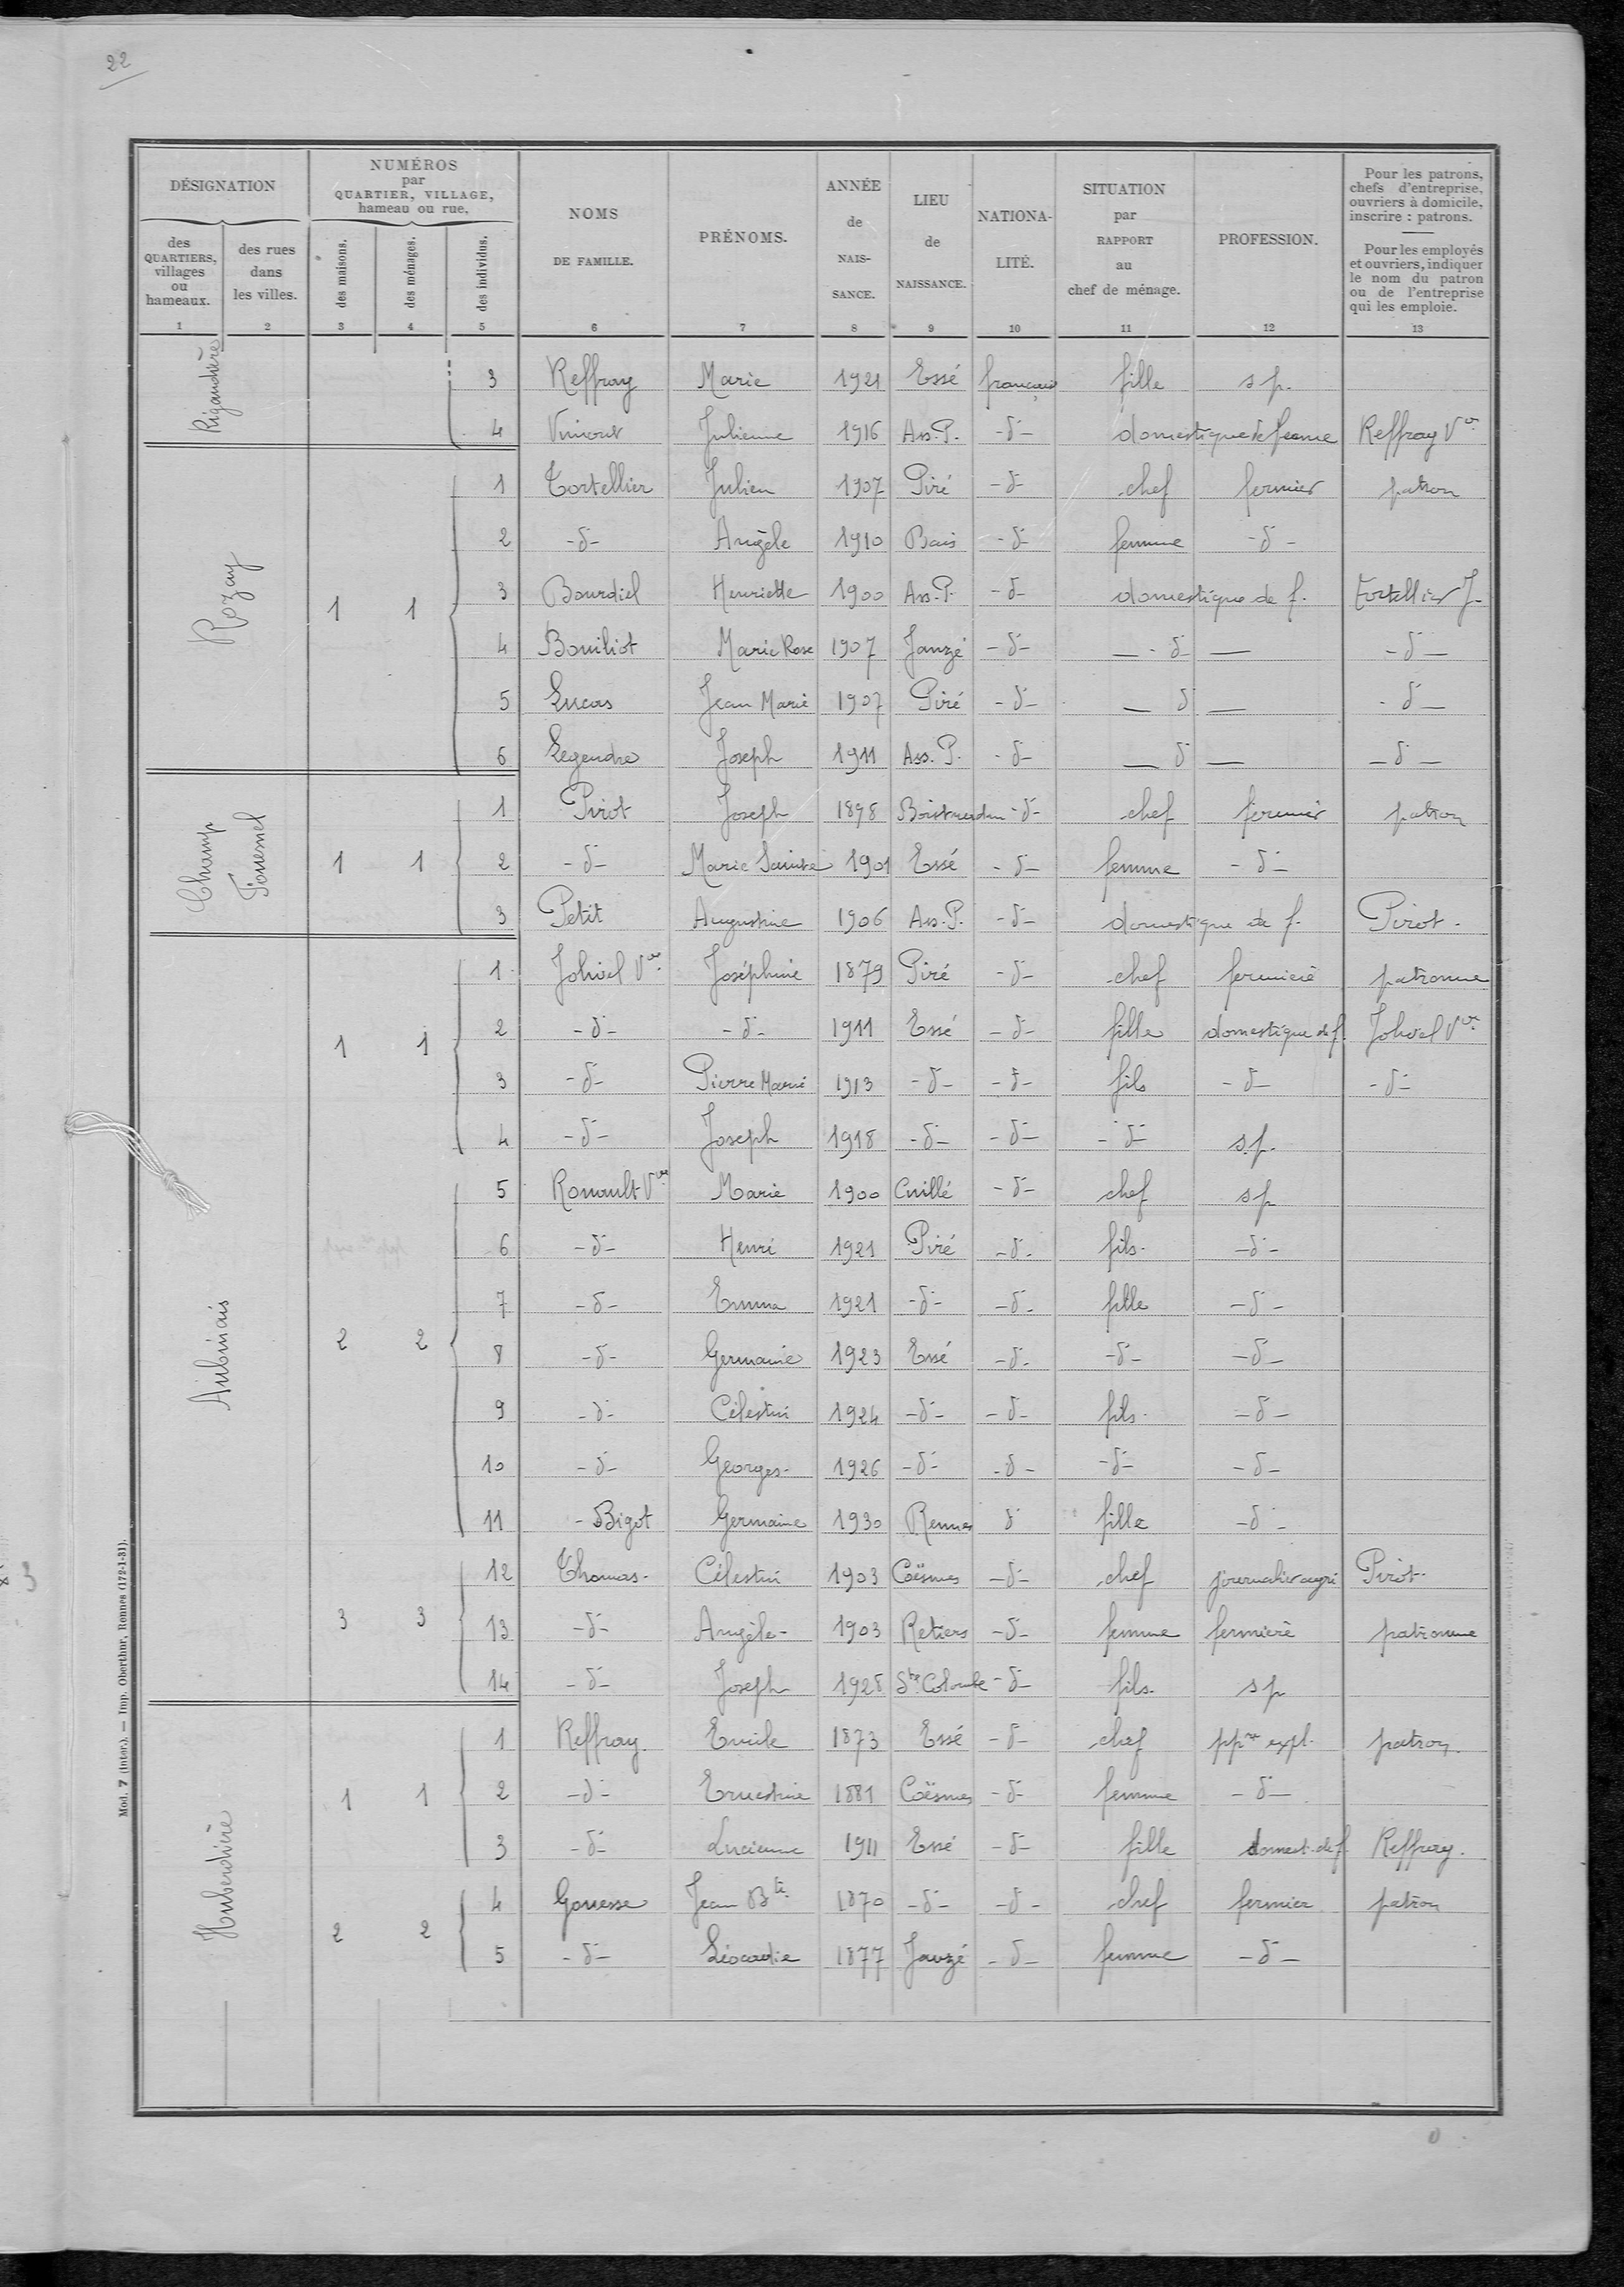 22
DÉSIGNATION
NUMÉROS
par
QUARTIER, VILLAGE,
hameau ou rue.
des
QUARTIERS,
villages
ou
hameaux.
des rues
dans
les villes.
des maisons.
des ménages.
des individus.
NOMS
DE FAMILLE.
PRÉNOMS.
ANNÉE
de
NAIS-
SANCE.
LIEU
de
NAISSANCE.
NATIONA-
LITÉ.
SITUATION
par
RAPPORT
au
chef de ménage.
PROFESSION.
Pour les patrons,
chefs d'entreprise,
ouvriers à domicile,
inscrire : patrons.
Pour les employés
et ouvriers, indiquer
le nom du patron
ou de l'entreprise
qui les emploie.
1 2 3 4 5 6 7 8 9 10 11 12 13
Rigaudière
3 Reffray Marie 1921 Essé française fille s p.
4 Julienne 1916 Ass. P. -d- domestique de ferme Reffray Vve
Rozay
1 1
1 Tortellier Julien 1907 Piré -d- chef fermier patron
2 -d- Angèle 1910 Bais -d- femme -d-
3 Bourdiel Henriette 1900 Ass. P. -d- domestique de f. Tortellier J.
4 Bouiliot Marie Rose 1907 Janzé -d- — d — -d-
5 Lucas Jean Marie 1907 Piré -d- — d — -d-
6 Legendre Joseph 1911 Ass. P. -d- — d — -d-
Champ
1 1
1 Pirot Joseph 1898 Boistrudan -d- chef fermier patron
2 -d- Marie Sainte 1901 Essé -d- femme -d-
3 Petit Augustine 1906 Ass. P. -d- domestique de f. Pirot.
Aubinais
1 1
1 Johiel Vve Joséphine 1879 Piré -d- chef fermière patronne
2 -d- -d- 1911 Essé -d- fille domestique de f. Johiel Vve
3 -d- Pierre Marie 1913 -d- -d- fils -d- -d-
4 -d- Joseph 1918 -d- -d- -d- s.p.
2 2
5 Ronault Vve Marie 1900 Cuillé -d- chef s p
6 -d- Henri 1921 Piré -d- fils. -d-
7 -d- Emma 1921 -d- -d- fille -d-
8 -d- Germaine 1923 Essé -d- -d- -d-
9 -d- Célestin 1924 -d- -d- fils. -d-
10 -d- Georges 1926 -d- -d- -d- -d-
11 - Bigot Germaine 1930 Rennes d fille -d-
3 3
12 Thomas Célestin 1903 Coësmes -d- chef journalier agri Pirot
13 -d- Angèle 1903 Retiers -d- femme fermière patronne
14 -d- Joseph 1928 Ste Colombe -d- fils. s p
Huberdière
1 1
1 Reffray. Emile 1873 Essé -d- chef ppre expl. patron.
2 -d- Ernestine 1881 Coësmes -d- femme -d-
3 -d- Lucienne 1911 Essé -d- fille domest. de f. Reffray.
2 2
4 Gouesse Jean Bte 1870 -d- -d- chef fermier patron
5 -d- Léocadie 1877 Janzé -d- femme -d-
Mod. 7 (inter). — Imp. Oberthur, Rennes (172-1-31).
3